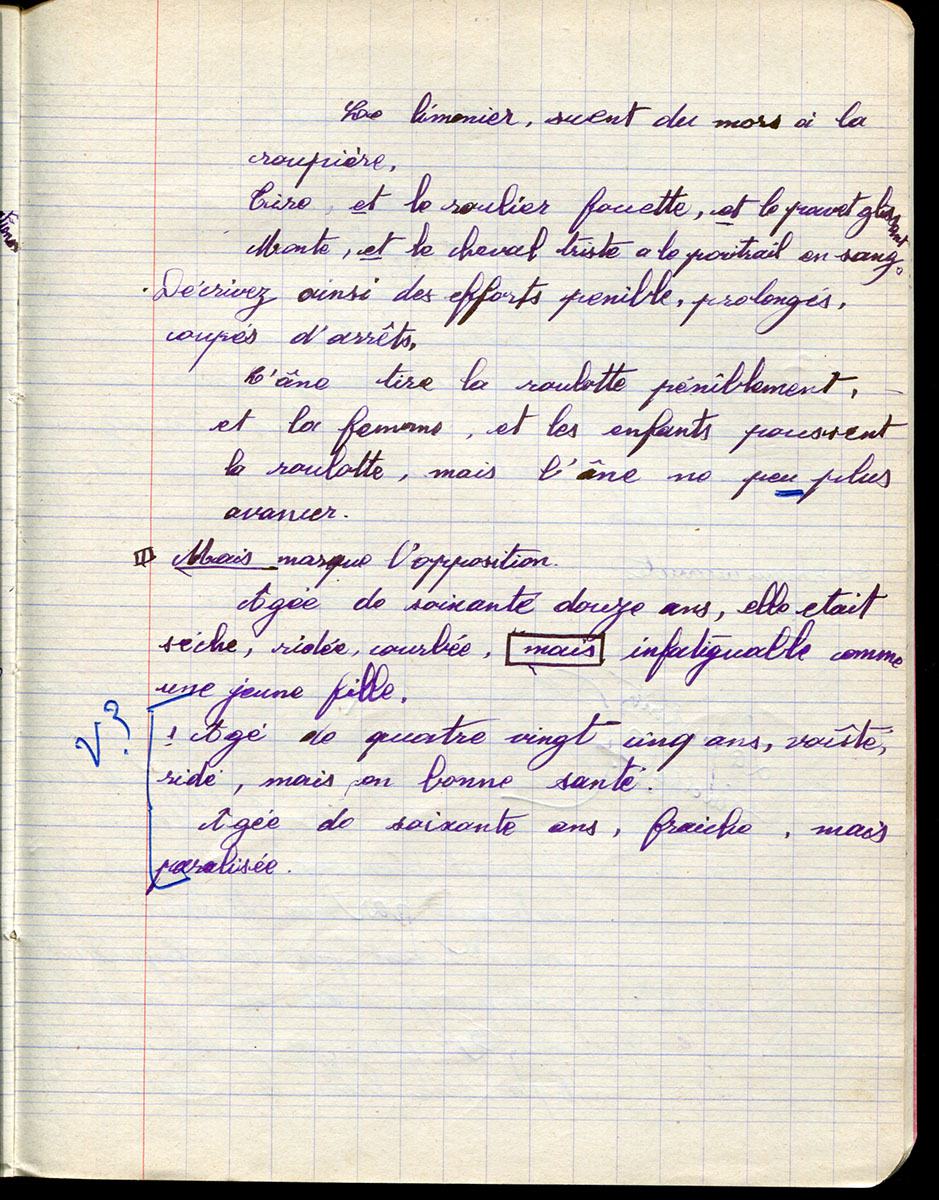 Le limonier, suent du mors à la
croupière,
Tire, et le roulier fouette, et le pavet glissant
Monte, et le cheval triste a le poitrail en sang.
Décrivez ainsi des efforts penible, prolongés,
coupés d'arrêts,
L'âne tire la roulotte péniblement,
et la femme, et les enfants poussent
la roulotte, mais l'âne ne peu plus
avancer.
II Mais marque l'opposition.
Agée de soixante douze ans, elle etait
séche, ridée, courbée, mais infatiguable comme
une jeune fille.
V? ! Agé de quatre vingt cinq ans, voûté,
ridé, mais en bonne santé.
Agée de soixante ans, fraiche, mais
paralisée.